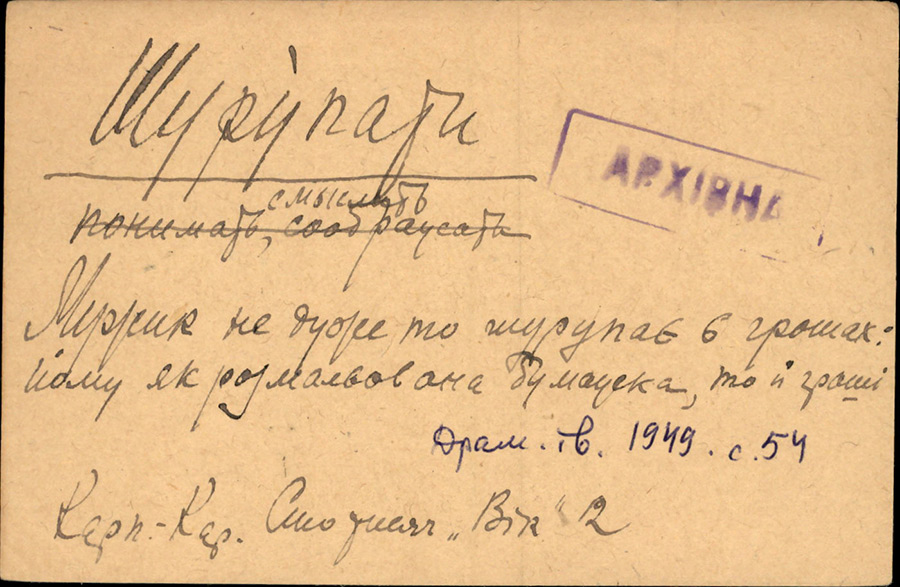 Шурупати
АРХІВНА
смыслить
понимать, соображать
Мужик не дуже то шурупає в грошах:
йому як розмальована бумажка, то й гроші
Драм. тв. 1949. с. 54
Карп.-Кар. Сто тисяч „Вік“ 2